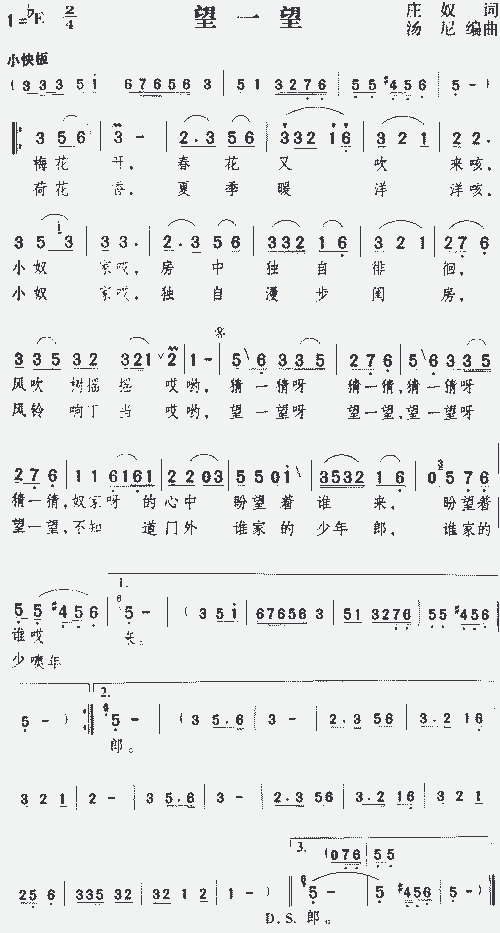 1=♭E 2/4 望一望 庄奴 词
汤尼 编曲
小快板
( 3 3 3 5 i 6 7 6 5 6 3 | 5 1 3 2 7 6 | 5 5 #4 5 6 | 5 - )
3 5 6 | 3 - | 2 · 3 5 6 | 3 3 2 1 6 | 3 2 1 | 2 2 ·
梅花 开, 春花又 吹 来咳,
荷花 香, 夏季暖 洋 洋咳,
3 5 i 3 | 3 3 · | 2 · 3 5 6 | 3 3 2 1 6 | 3 2 1 | 2 7 6
小奴 家哎, 房中独自徘徊,
小奴 家哎, 独自漫步闺房,
3 3 5 3 2 3 2 1 | 2 | 1 - | 5 \ 6 3 3 5 | 2 7 6 | 5 \ 6 3 3 5
风吹 树摇 摇 哎哟, 猜一猜呀 猜一猜, 猜一猜呀
风铃 响丁 当 哎哟, 望一望呀 望一望, 望一望呀
2 7 6 | 1 1 6 1 6 1 | 2 2 0 3 | 5 5 0 i \ | 3 5 3 2 1 6 | 0 3 5 7 6
猜一猜, 奴家呀 的心中 盼望着 谁 来, 盼望着
望一望, 不知 道门外 谁家的 少年 郎, 谁家的
5 5 #4 5 6 | 1. 6 5 - | ( 3 5 i | 6 7 6 5 6 3 | 5 1 3 2 7 6 | 5 5 #4 5 6
谁哎 来。
少噢年
5 - ) :‖ 2. 6 5 - | ( 3 5 · 6 | 3 - | 2 · 3 5 6 | 3 · 2 1 6
郎。
3 2 1 | 2 - | 3 5 · 6 | 3 - | 2 · 3 5 6 | 3 · 2 1 6 | 3 2 1
3. ( 0 7 6 | 5 5
2 5 6 | 3 3 5 3 2 | 3 2 1 2 | 1 - ) ‖ 6 5 - | 5 #4 5 6 | 5 - ) ‖
D.S. 郎。